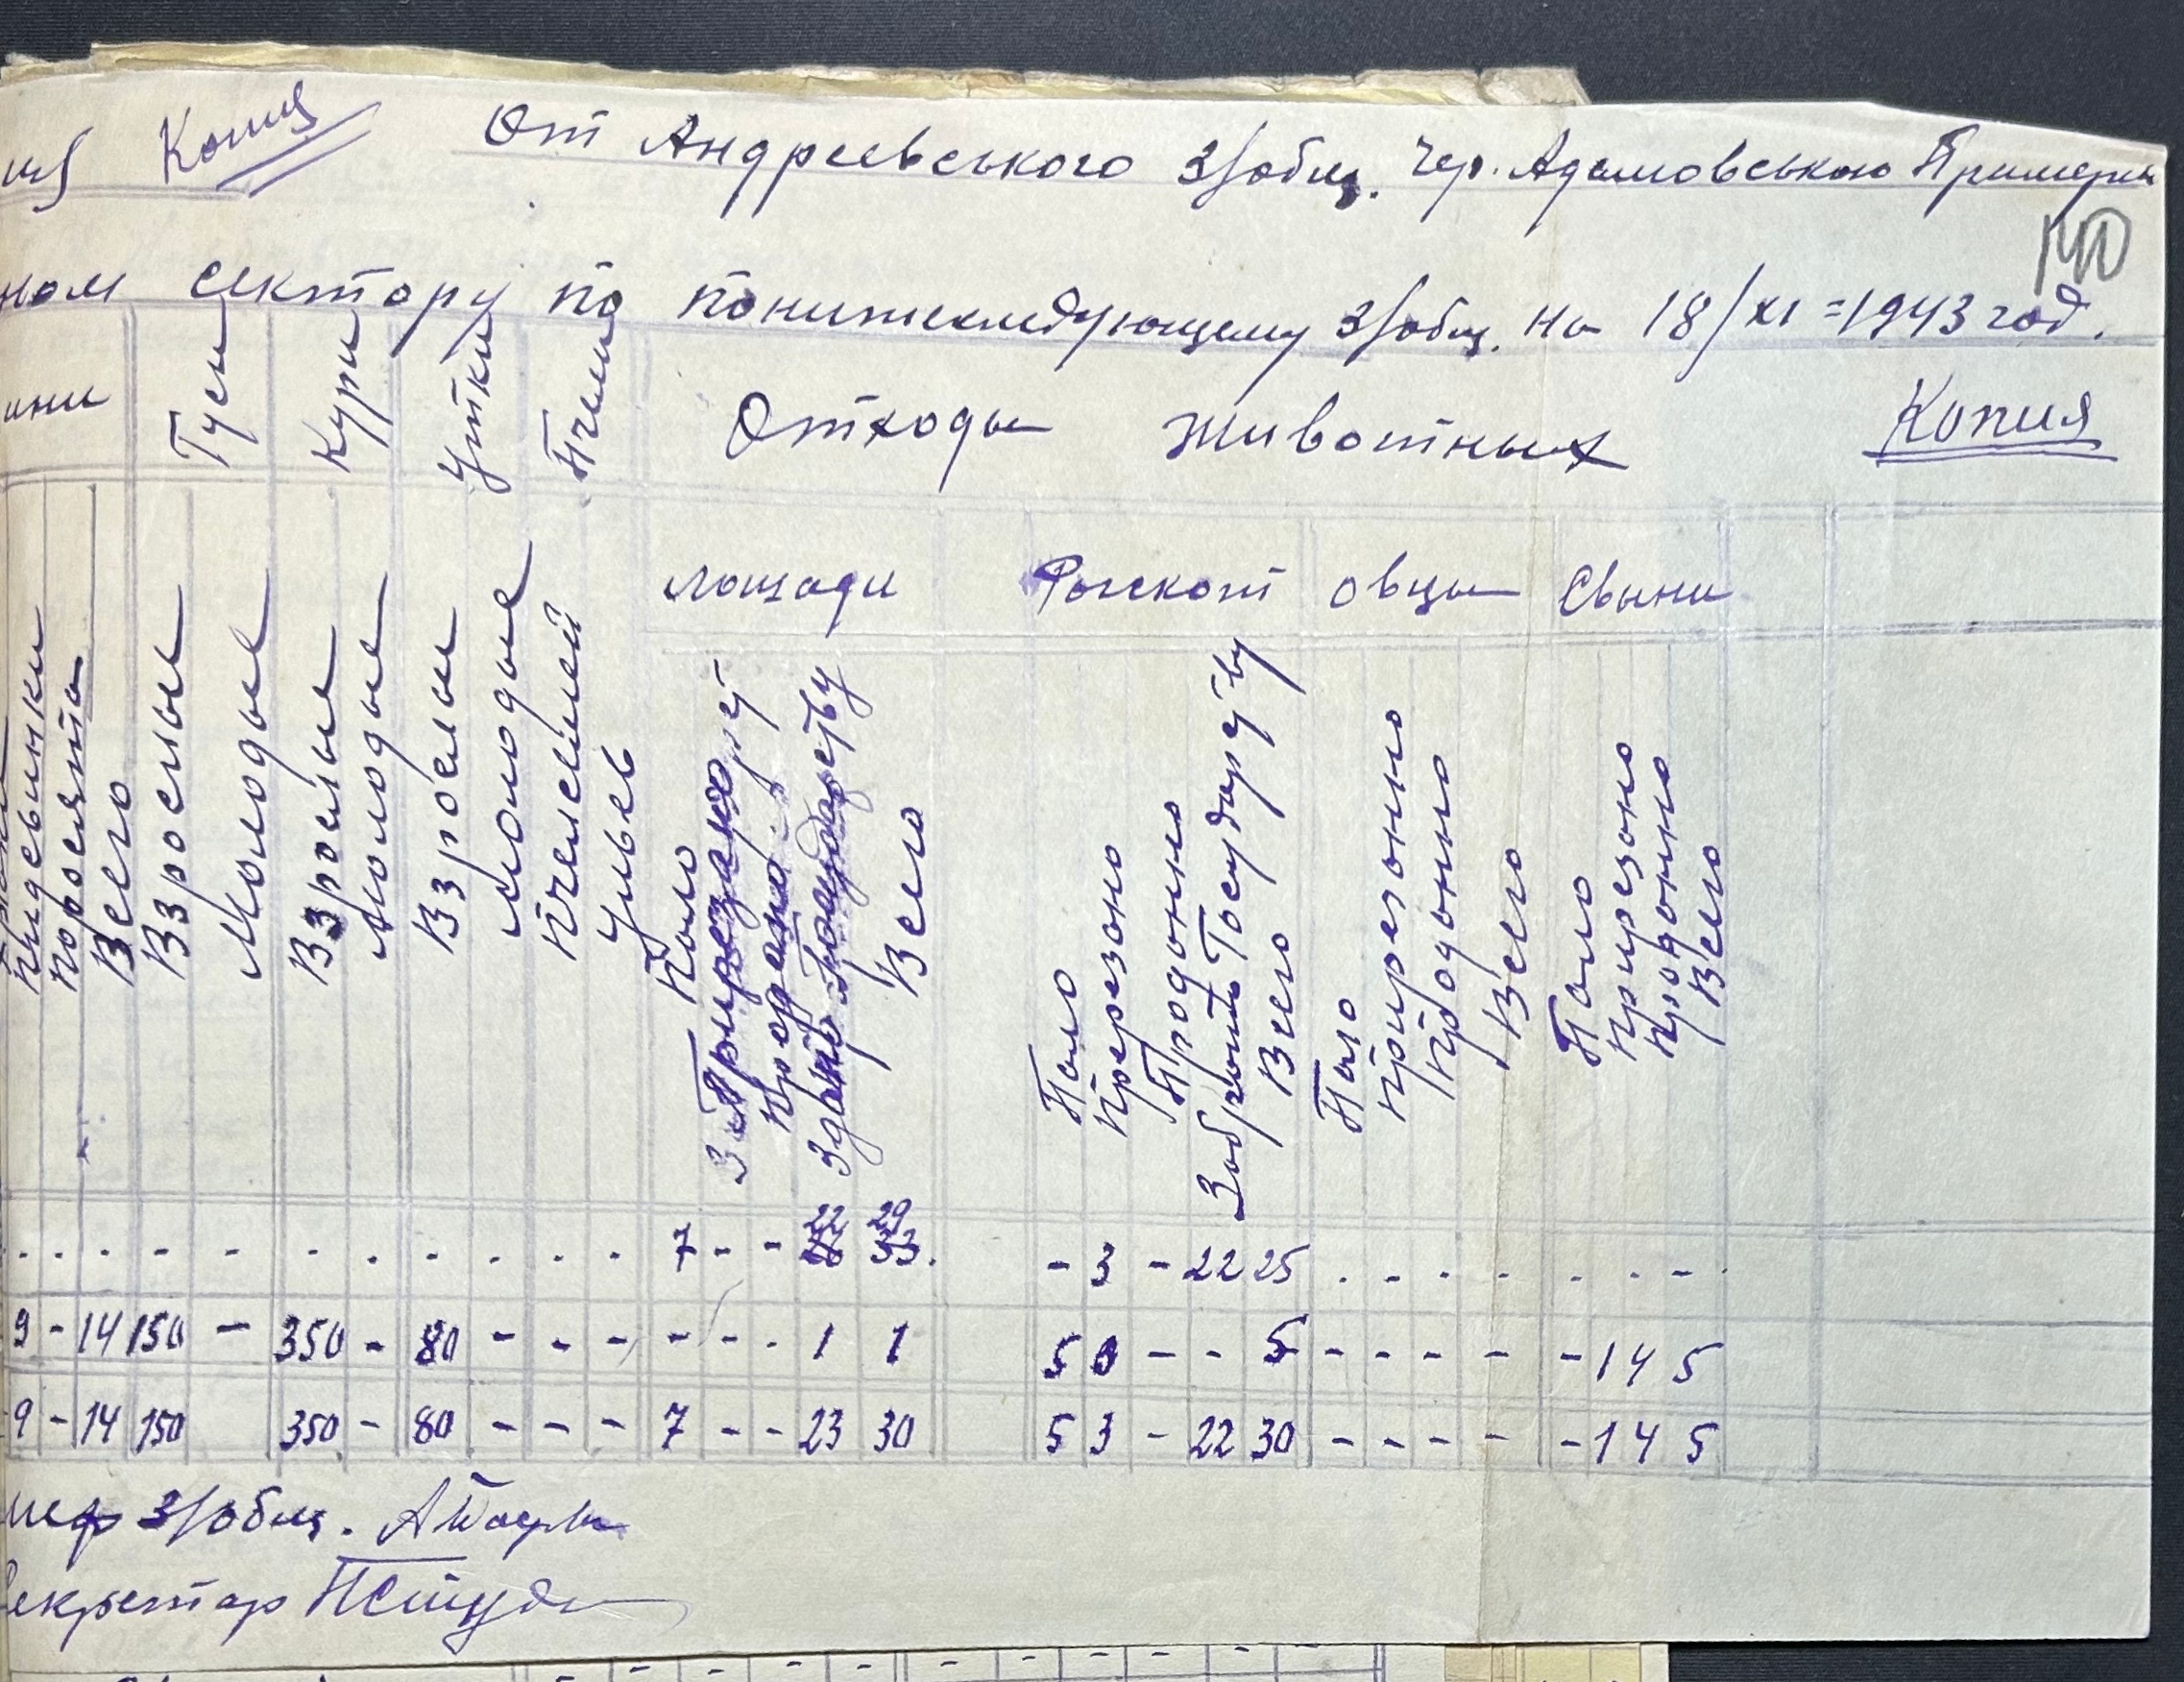 Копия От Андреевського з/общ. Чер. Адамовського Примери
140
ном сектору по понижеследующему з/общ. на 18/XI = 1943 год.
Гуси Кури Утки Пчели Отходы животных Копия
лошади Рогскот овцы Свыни
поросята Всего Взрослые Молодые Взрослые Молодые Взрослы Молодые пчелосемей Ульев
Поло Прирезано продано Здано Государству Всего
Поло Пререзано Продонно Государству Всего
Поло прирезонно продонно Всего
Поло прирезоно продонно Всего
. . . - - - . - . - . 7 - - 22 29 33. - 3 - 22 25 . - - - - - - - .
9 - 14 150 - 350 - 80 - - - - - - - . 1 1 5 0 - - 5 - - - - - 1 4 5
9 - 14 150 350 - 80 - - - 7 - - 23 30 5 3 - 22 30 - - - - - 1 4 5
з/общ.
Секретар